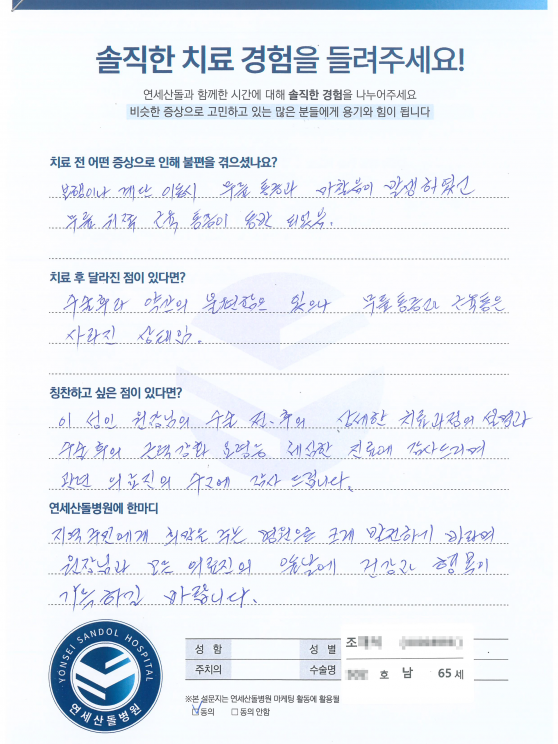 솔직한 치료 경험을 들려주세요!
연세산돌과 함께한 시간에 대해 솔직한 경험을 나누어주세요
비슷한 증상으로 고민하고 있는 많은 분들에게 용기와 힘이 됩니다
치료 전 어떤 증상으로 인해 불편을 겪으셨나요?
보행이나 계단 이동시 무릎 통증과 마찰음이 발생하였고
무릎 뒤쪽 근육 통증이 동반 되었음.
치료 후 달라진 점이 있다면?
수술후라 약간의 불편함은 있으나 무릎통증과 근육통은
사라진 상태임.
칭찬하고 싶은 점이 있다면?
이 성인 원장님의 수술 전·후의 상세한 치료과정의 설명과
수술 후의 근력강화 요령등 세심한 진료에 감사드리며
관련 의료진의 수고에 감사 드립니다.
연세산돌병원에 한마디
지역주민에게 희망을 주는 병원으로 크게 발전하기 바라며
원장님과 모든 의료진의 앞날에 건강과 행복이
가득하길 바랍니다.
YONSEI SANDOL HOSPITAL
연세산돌병원
성 함 성 별 조
주치의 수술명 호 남 65세
※본 설문지는 연세산돌병원 마케팅 활동에 활용될
☑동의 □동의 안함